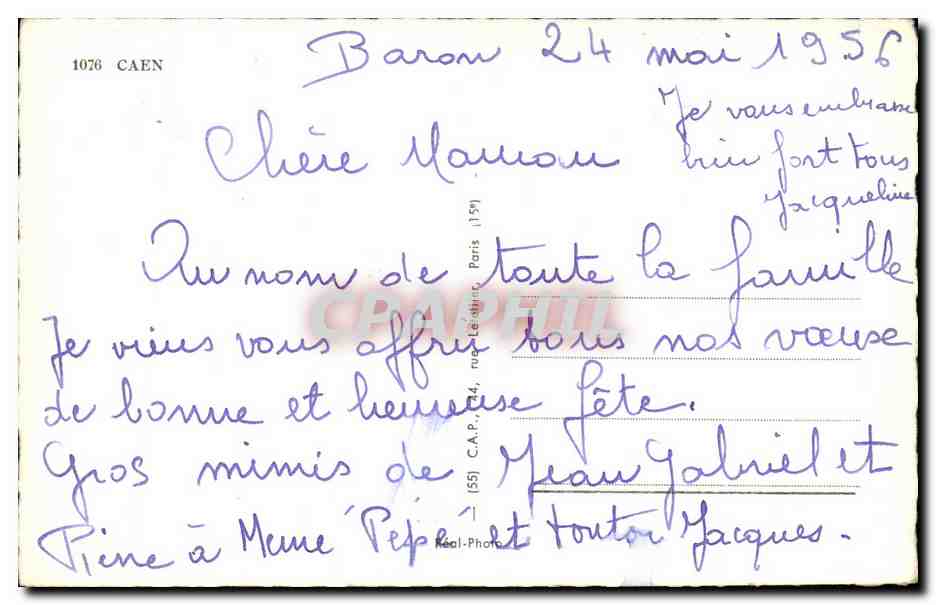 1076 CAEN
Baron 24 mai 1956
Chère Maman
Je vous embrasse
bien fort tous
Jacqueline
Au nom de toute la famille
Je viens vous offrir tous nos vœuxe
de bonne et heureuse fête.
Gros mimis de Jean Gabriel et
Pierre à Mémé Pépé et tonton Jacques.
(55) C.A.P., 44, rue Letellier, Paris (15e)
Réal-Photo
CPAPHIL